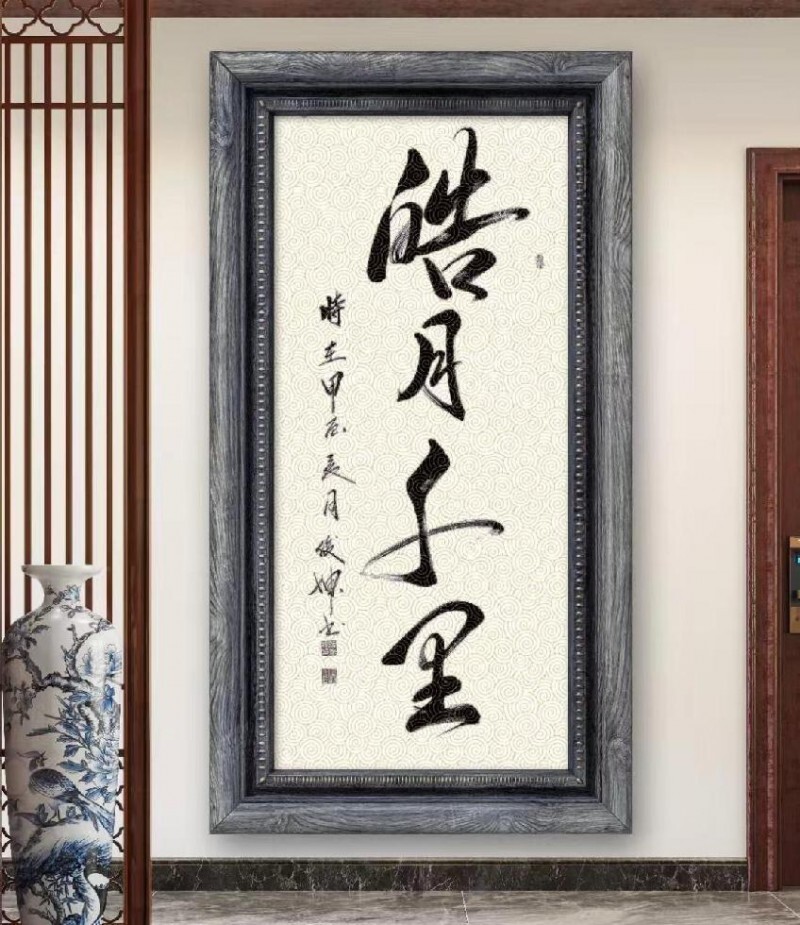 皓月千里
時在甲辰夏月俊坤书